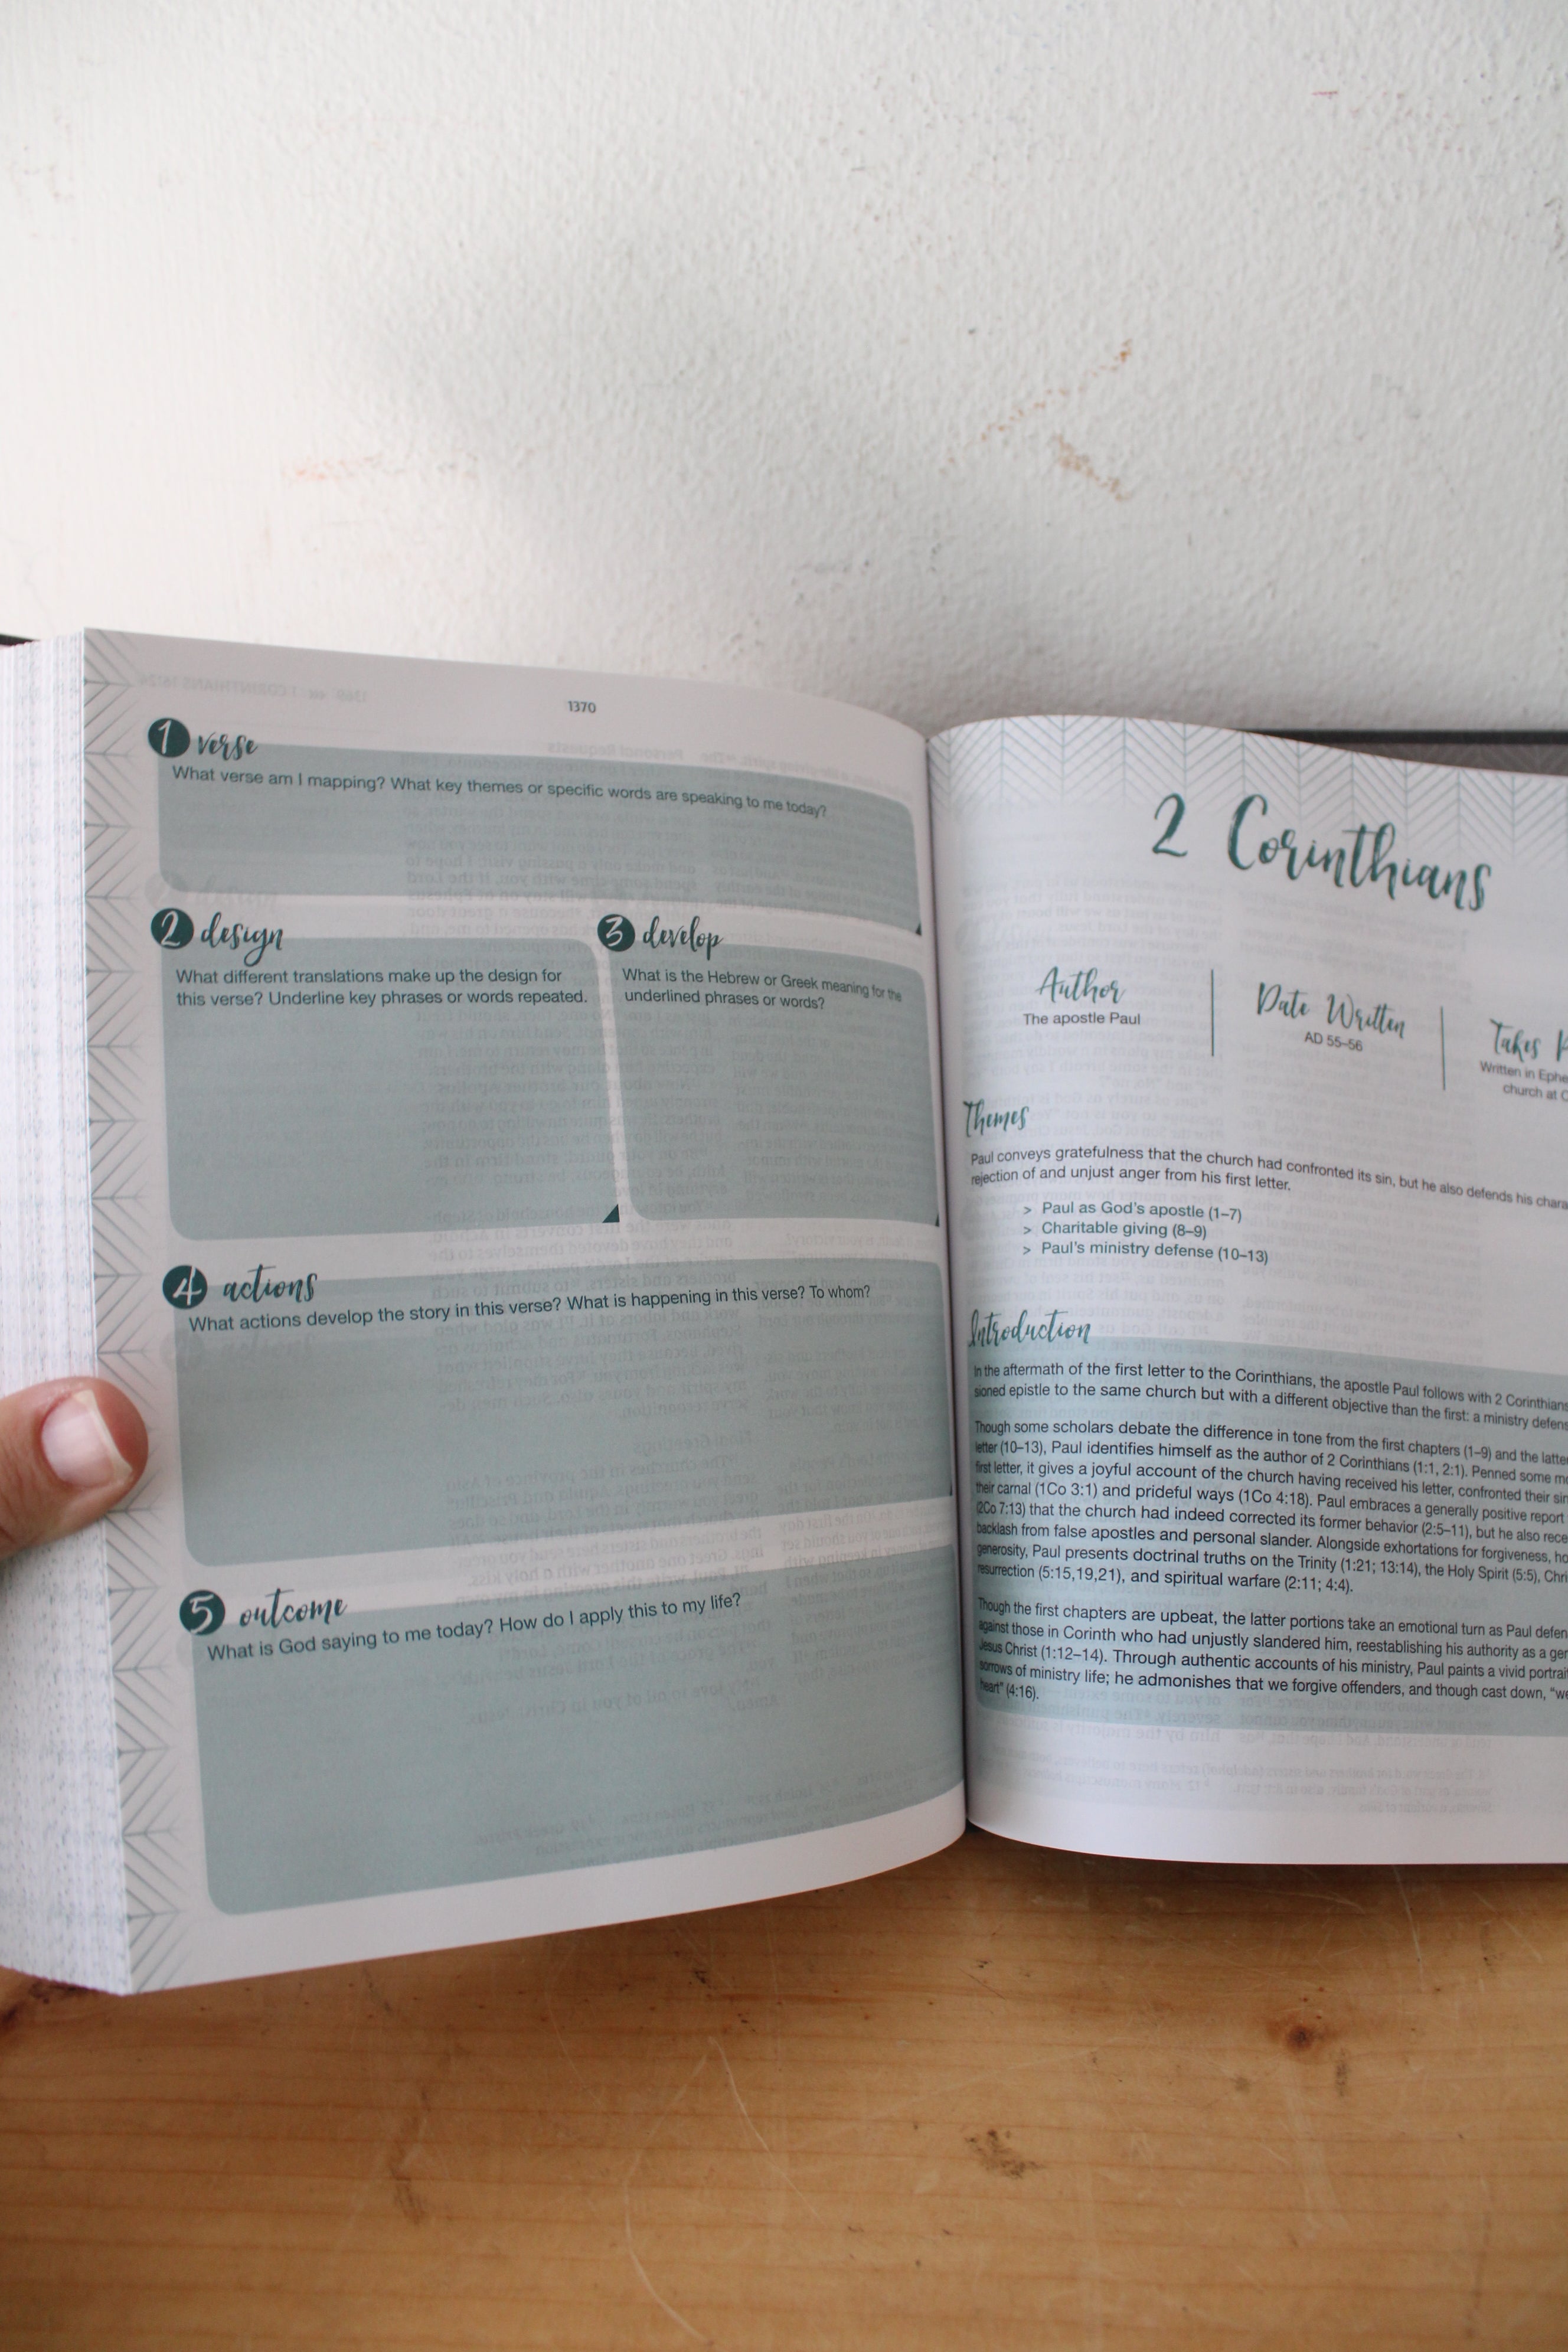 1370
1 verse
What verse am I mapping? What key themes or specific words are speaking to me today?
2 design
What different translations make up the design for
this verse? Underline key phrases or words repeated.
3 develop
What is the Hebrew or Greek meaning for the
underlined phrases or words?
4 actions
What actions develop the story in this verse? What is happening in this verse? To whom?
5 outcome
What is God saying to me today? How do I apply this to my life?
2 Corinthians
Author
The apostle Paul
Date Written
AD 55–56
Takes
Written in
church at
Themes
Paul conveys gratefulness that the church had confronted its sin, but he also defends his
rejection of and unjust anger from his first letter.
> Paul as God's apostle (1–7)
> Charitable giving (8–9)
> Paul's ministry defense (10–13)
Introduction
In the aftermath of the first letter to the Corinthians, the apostle Paul follows with 2 Corinthians
sioned epistle to the same church but with a different objective than the first: a ministry
Though some scholars debate the difference in tone from the first chapters (1–9) and the
letter (10–13), Paul identifies himself as the author of 2 Corinthians (1:1, 2:1). Penned some
first letter, it gives a joyful account of the church having received his letter, confronted their
their carnal (1Co 3:1) and prideful ways (1Co 4:18). Paul embraces a generally positive report
(2Co 7:13) that the church had indeed corrected its former behavior (2:5–11), but he also
backlash from false apostles and personal slander. Alongside exhortations for forgiveness,
generosity, Paul presents doctrinal truths on the Trinity (1:21; 13:14), the Holy Spirit (5:5),
resurrection (5:15,19,21), and spiritual warfare (2:11; 4:4).
Though the first chapters are upbeat, the latter portions take an emotional turn as Paul
against those in Corinth who had unjustly slandered him, reestablishing his authority as a
Jesus Christ (1:12–14). Through authentic accounts of his ministry, Paul paints a vivid
sorrows of ministry life; he admonishes that we forgive offenders, and though cast down,
heart" (4:16).